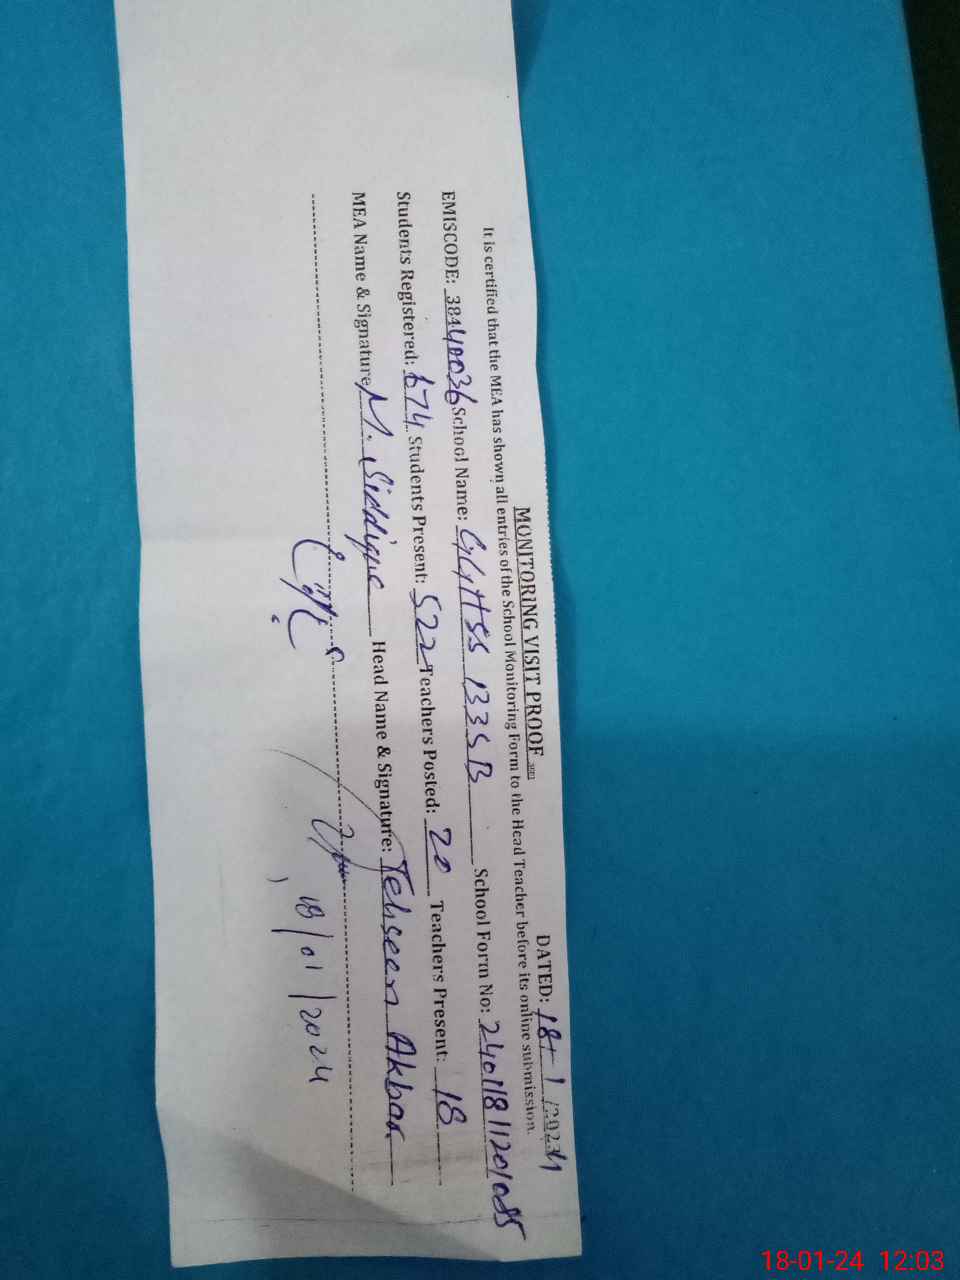 MONITORING VISIT PROOF
DATED: 18-1/2024
It is certified that the MEA has shown all entries of the School Monitoring Form to the Head Teacher before its online submission.
EMISCODE: 38440036 School Name: GGHSS 133SB School Form No: 24011811201085
Students Registered: 674 Students Present: 522 Teachers Posted: 20 Teachers Present: 18
MEA Name & Signature M. Siddique Head Name & Signature: Tehseen Akbar
18/01/2024
18-01-24 12:03